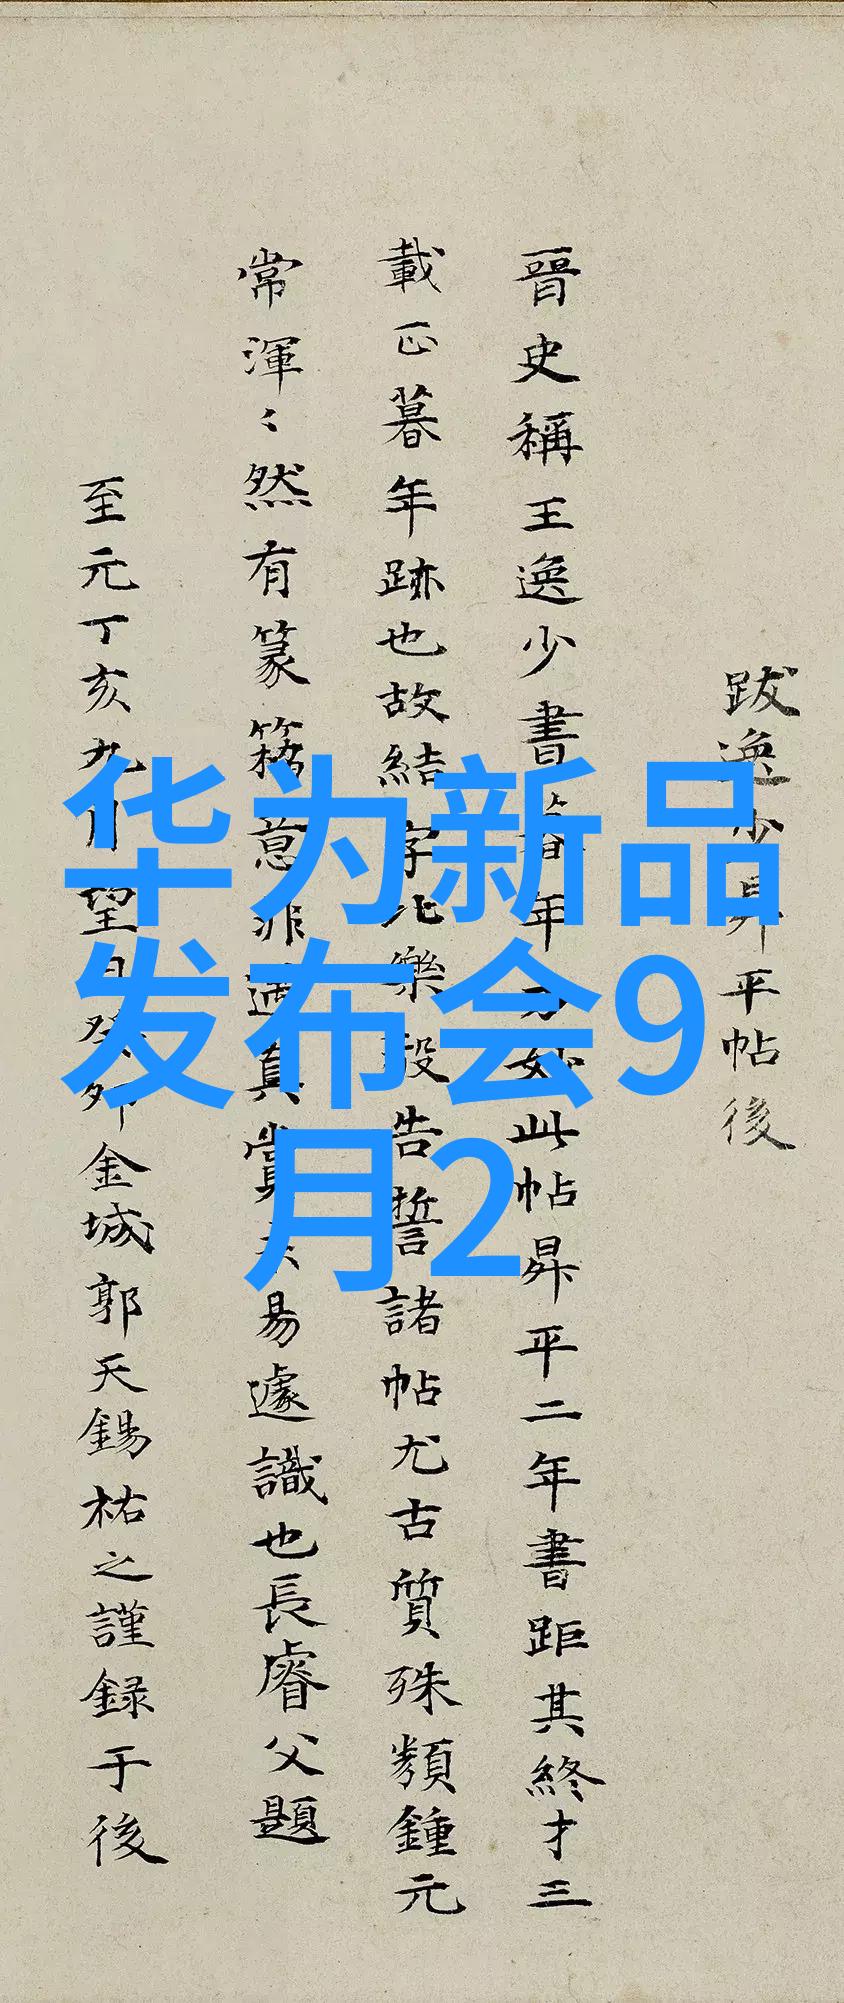 跋逸少昇平帖後
晉史稱王逸少書暮年方妙此帖昇平二年書距其終才三
載正暮年跡也故結字比樂毅告誓諸帖尤古質殊類鍾元
常渾〻然有篆籀意非遇真賞未易遽識也長睿父題
至元丁亥九月望日癸卯金城郭天錫祐之謹録于後
华为新品
发布会9
月2